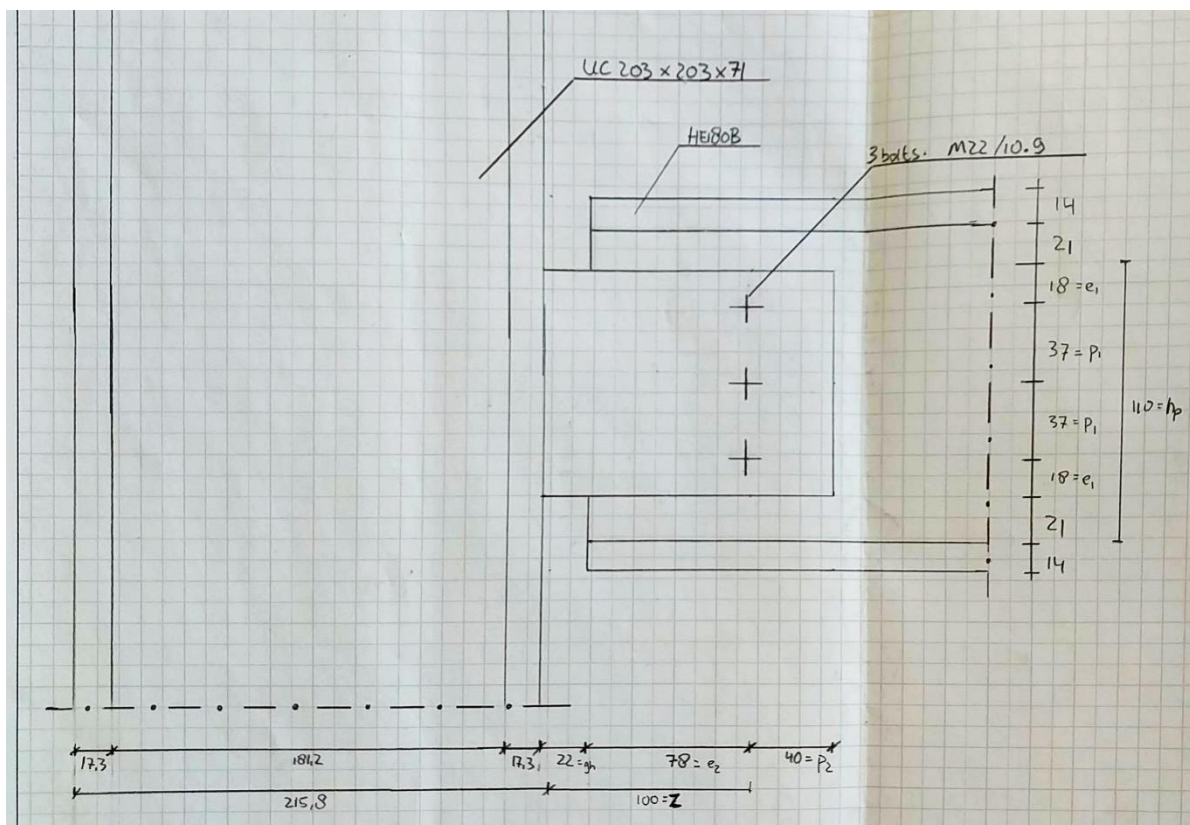 UC 203 × 203 × 71
HE180B
3 bolts. M22/10.9
14
21
18 = e₁
37 = p₁
110 = hp
37 = p₁
18 = e₁
21
14
17,3
181,2
17,3
22 = gh
78 = e₂
40 = p₂
215,8
100 = Z